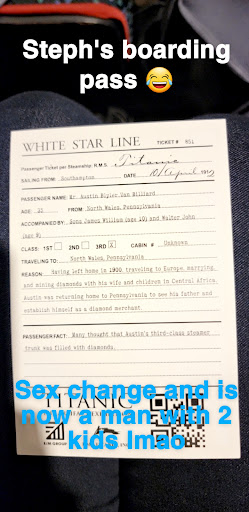 Steph's boarding
pass 😂
WHITE STAR LINE TICKET # 951
Passenger Ticket per Steamship, R.M.S. Titanic
SAILING FROM Southampton DATE 10/April 1912
PASSENGER NAME: Mr. Austin Blyler Van Billiard
AGE 35 FROM North Wales, Pennsylvania
ACCOMPANIED BY: Sons James William (age 10) and Walter John
(age 9)
CLASS: 1ST 2ND 3RD X CABIN # Unknown
TRAVELING TO: North Wales, Pennsylvania
REASON Having left home in 1900, traveling to Europe, marrying,
and mining diamonds with his wife and children in Central Africa,
Austin was returning home to Pennsylvania to see his father and
establish himself as a diamond merchant.
PASSENGER FACT: Many thought that Austin's third-class steamer
trunk was filled with diamonds.
Sex change and is
now a man with 2
kids lmao
TITANIC